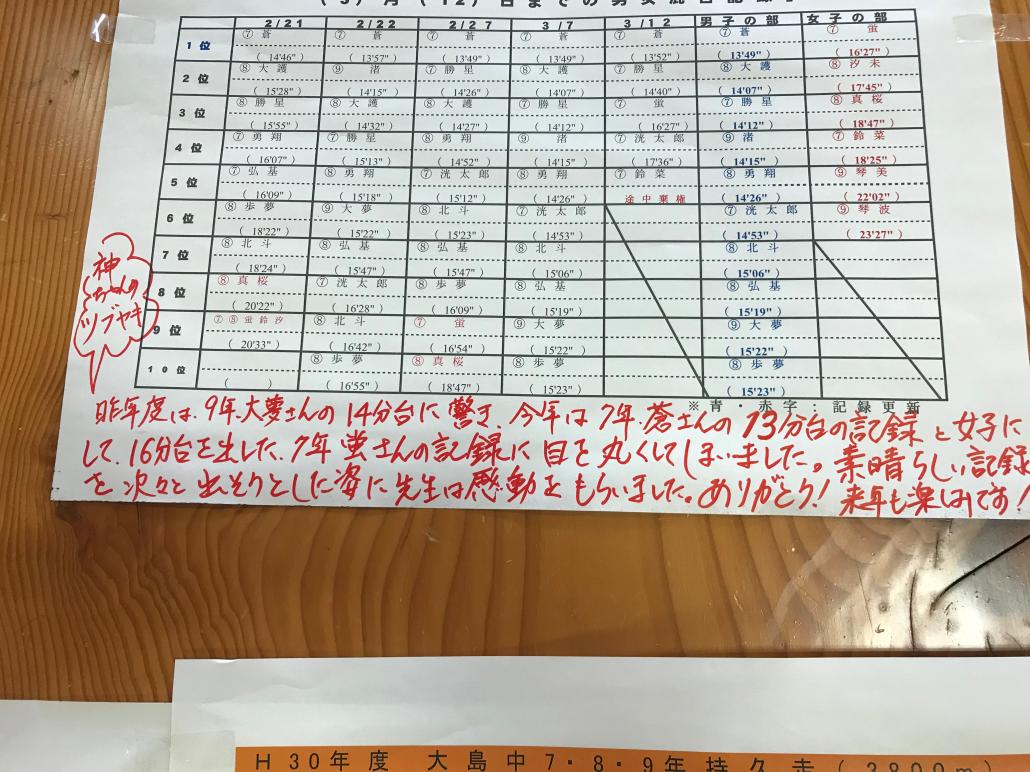 (3)月(12)日までの男女混合記録
2/21 2/22 2/27 3/7 3/12 男子の部 女子の部
1位 ⑦ 蒼 ⑦ 蒼 ⑦ 蒼 ⑦ 蒼 ⑦ 蒼 ⑦ 蒼 ⑦ 蛍
(14'46") (13'57") (13'49") (13'49") (13'52") (13'49") (16'27")
2位 ⑧大護 ⑨渚 ⑦勝星 ⑧大護 ⑦勝星 ⑧大護 ⑧汐未
(15'28") (14'15") (14'26") (14'07") (14'40") (14'07") (17'45")
3位 ⑧勝星 ⑧大護 ⑧大護 ⑦勝星 ⑦蛍 ⑦勝星 ⑧真桜
(15'55") (14'32") (14'27") (14'12") (16'27") (14'12") (18'47")
4位 ⑦勇翔 ⑦勝星 ⑧勇翔 ⑨渚 ⑦洸太郎 ⑨渚 ⑦鈴菜
(16'07") (15'13") (14'52") (14'15") (17'36") (14'15") (18'25")
5位 ⑦弘基 ⑧勇翔 ⑦洸太郎 ⑧勇翔 ⑦鈴菜 ⑧勇翔 ⑨琴美
(16'09") (15'18") (15'12") (14'26") 途中棄権 (14'26") (22'02")
6位 ⑧歩夢 ⑨大夢 ⑧北斗 ⑦洸太郎 ⑦洸太郎 ⑨琴波
(18'22") (15'22") (15'23") (14'53") (14'53") (23'27")
7位 ⑧北斗 ⑧弘基 ⑧弘基 ⑧北斗 ⑧北斗
(18'24") (15'47") (15'47") (15'06") (15'06")
8位 ⑧真桜 ⑦洸太郎 ⑧歩夢 ⑧弘基 ⑧弘基
(20'22") (16'28") (16'09") (15'19") (15'19")
9位 ⑦⑧蛍鈴汐 ⑧北斗 ⑦蛍 ⑨大夢 ⑨大夢
(20'33") (16'42") (16'54") (15'22") (15'22")
10位 ⑧歩夢 ⑧真桜 ⑧歩夢 ⑧歩夢
( ) (16'55") (18'47") (15'23") (15'23")
※青・赤字:記録更新
神
ちゃんの
ツブヤキ
昨年度は、9年.大夢さんの14分台に驚き、今年は7年.蒼さんの13分台の記録と女子に
して、16分台を出した、7年 蛍さんの記録に目を丸くしてしまいました。素晴らしい記録
を次々と出そうとした姿に先生は感動をもらいました。ありがとう!来年も楽しみです!
H30年度 大島中7・8・9年持久走(3800m)